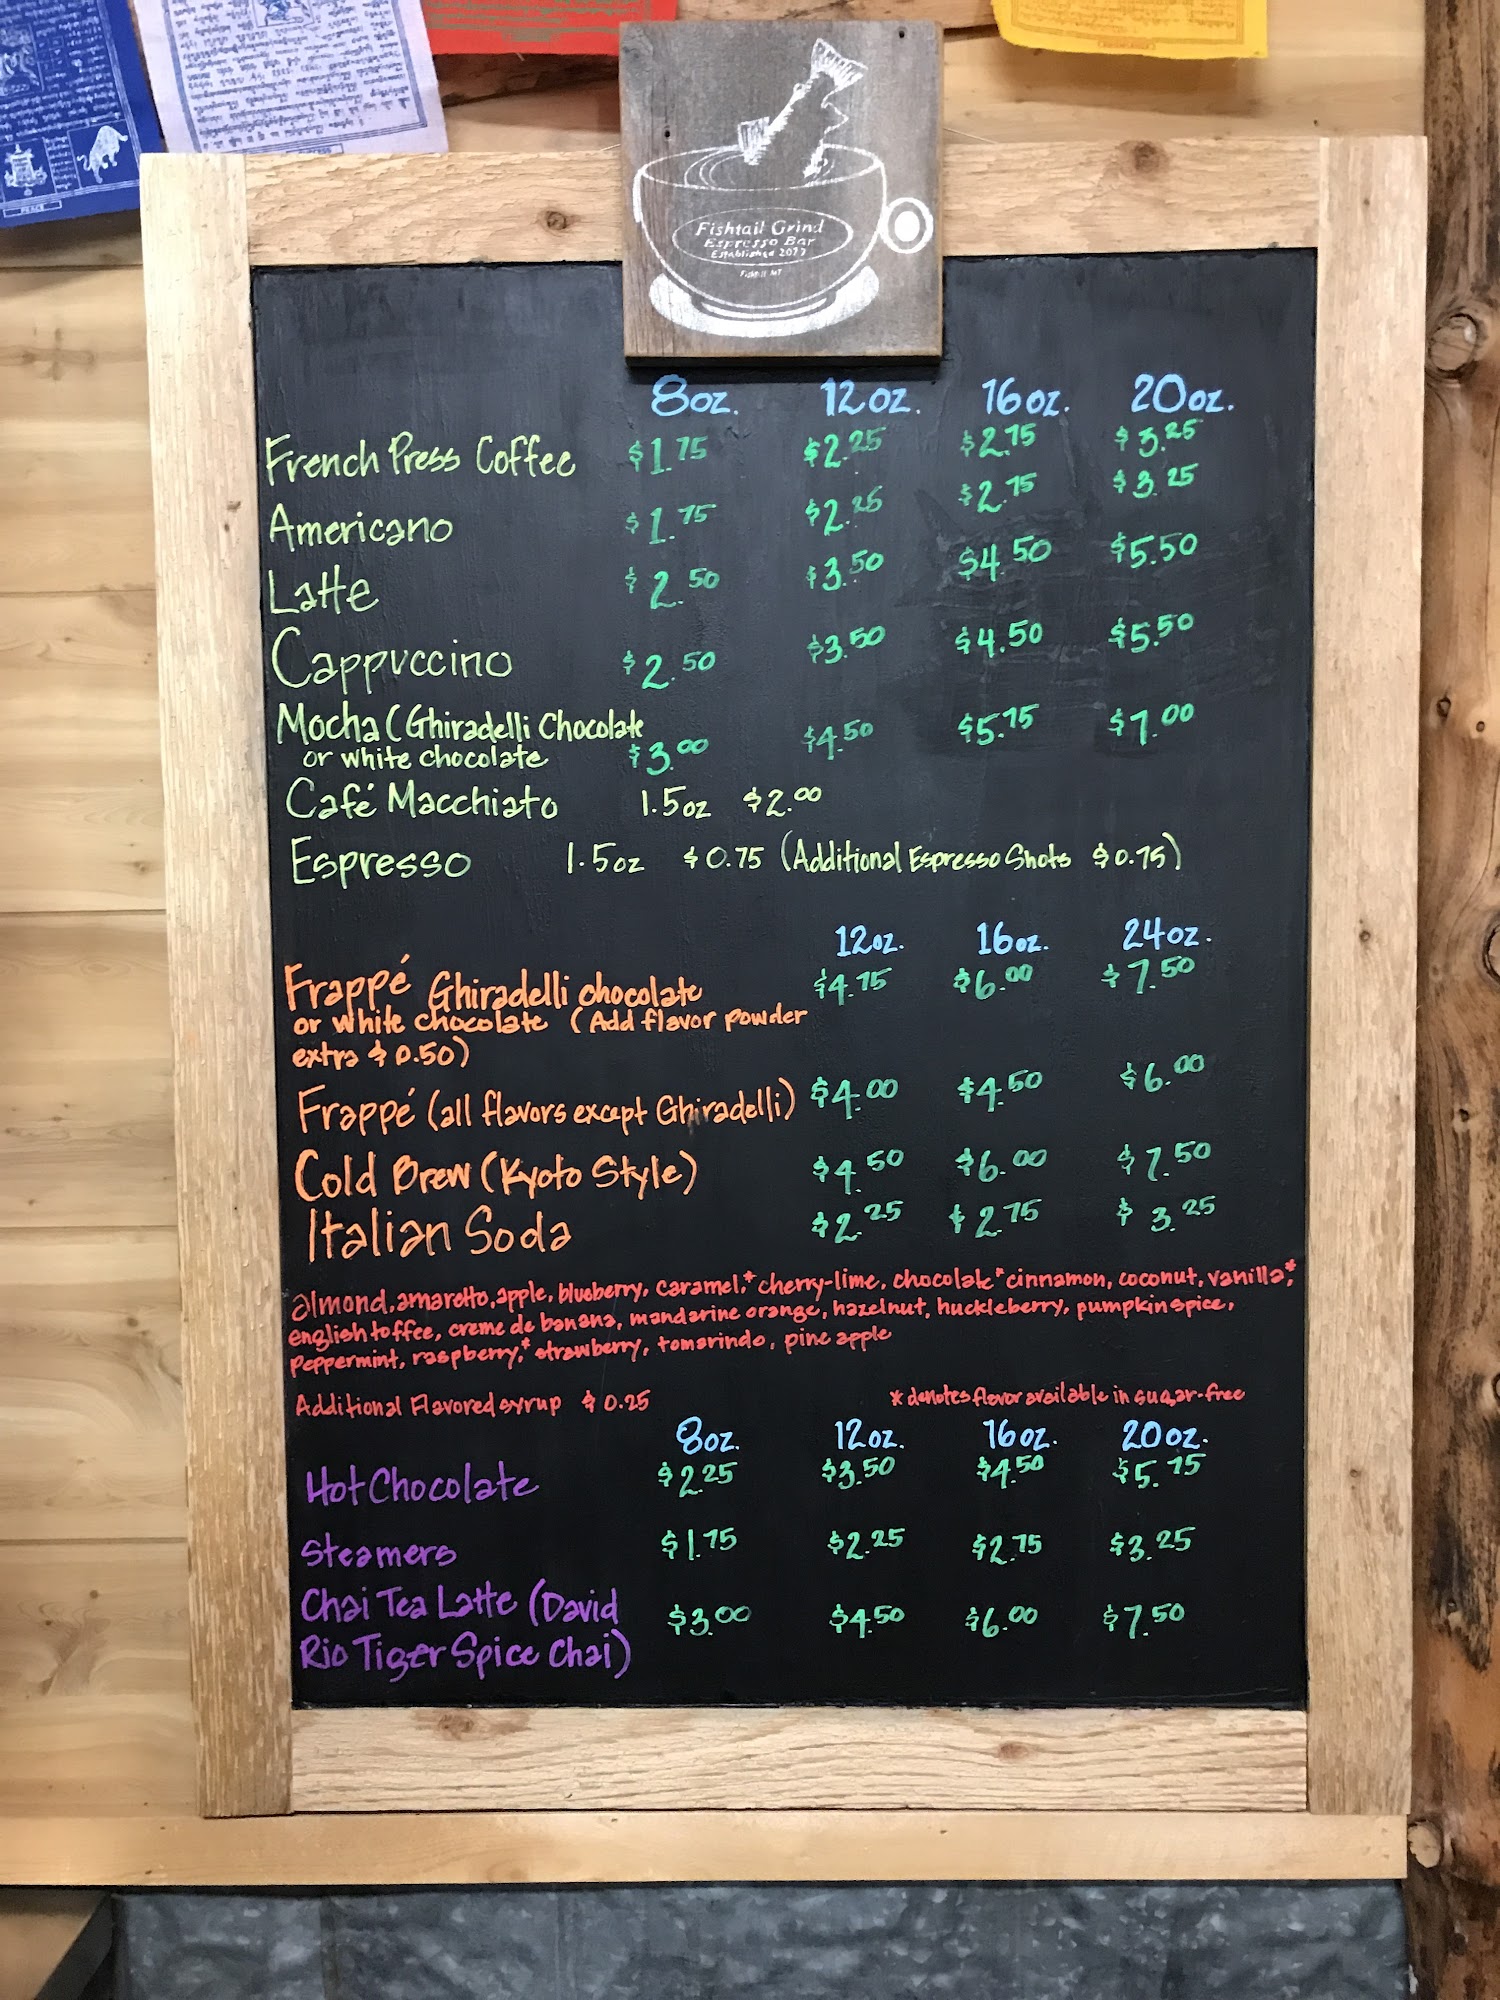 Fishtail Grind
Espresso Bar
8oz. 12oz. 16oz. 20oz.
French Press Coffee $1.75 $2.25 $2.75 $3.25
Americano $1.75 $2.25 $2.75 $3.25
Latte $2.50 $3.50 $4.50 $5.50
Cappuccino $2.50 $3.50 $4.50 $5.50
Mocha (Ghiradelli Chocolate
or white chocolate $3.00 $4.50 $5.75 $7.00
Café Macchiato 1.5oz $2.00
Espresso 1.5oz $0.75 (Additional Espresso Shots $0.75)
12oz. 16oz. 24oz.
Frappé Ghiradelli chocolate $4.75 $6.00 $7.50
or white chocolate (Add flavor powder
extra $0.50)
Frappé (all flavors except Ghiradelli) $4.00 $4.50 $6.00
Cold Brew (Kyoto Style) $4.50 $6.00 $7.50
Italian Soda $2.25 $2.75 $3.25
almond, amaretto, apple, blueberry, caramel,* cherry-lime, chocolate* cinnamon, coconut, vanilla*,
english toffee, creme de banana, mandarine orange, hazelnut, huckleberry, pumpkin spice,
peppermint, raspberry,* strawberry, tomarindo, pine apple
Additional Flavored syrup $0.25 * denotes flavor available in sugar-free
8oz. 12oz. 16oz. 20oz.
Hot Chocolate $2.25 $3.50 $4.50 $5.75
Steamers $1.75 $2.25 $2.75 $3.25
Chai Tea Latte (David $3.00 $4.50 $6.00 $7.50
Rio Tiger Spice Chai)